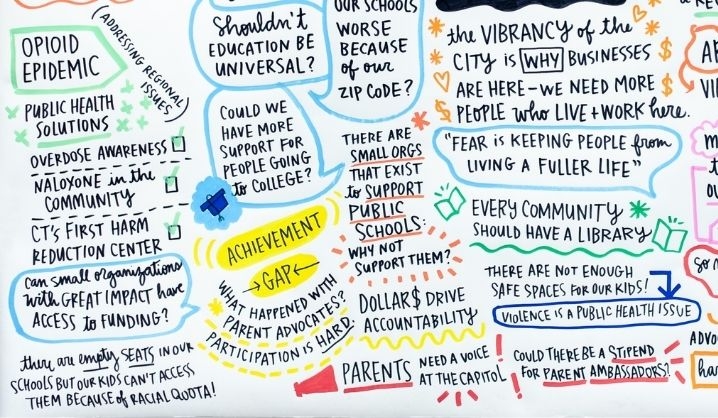 OPIOID
EPIDEMIC
(ADDRESSING REGIONAL
ISSUES)
PUBLIC HEALTH
SOLUTIONS
OVERDOSE AWARENESS
NALOXONE in the
COMMUNITY
CT's FIRST HARM
REDUCTION CENTER
Can small organizations
with GREAT IMPACT have
ACCESS to FUNDING?
they are empty SEATS IN OUR
SCHOOLS BUT OUR KIDS CAN'T ACCESS
THEM BECAUSE of RACIAL QUOTA!
Shouldn't
EDUCATION BE
UNIVERSAL?
OUR SCHOOLS
WORSE
BECAUSE
of our
ZIP CODE?
COULD WE
HAVE MORE
SUPPORT FOR
PEOPLE GOING
to COLLEGE?
ACHIEVEMENT
GAP
WHAT HAPPENED WITH
PARENT ADVOCATES?
PARTICIPATION IS HARD.
THERE ARE
SMALL ORGS
THAT EXIST
to SUPPORT
PUBLIC
SCHOOLS:
WHY NOT
SUPPORT THEM?
DOLLAR$ DRIVE
ACCOUNTABILITY
PARENTS NEED A VOICE
AT THE CAPITOL
the VIBRANCY of the
CITY is WHY BUSINESSES
ARE HERE - WE NEED MORE
PEOPLE who LIVE + WORK here.
"FEAR is KEEPING PEOPLE from
LIVING A FULLER LIFE"
EVERY COMMUNITY
SHOULD HAVE A LIBRARY
THERE ARE NOT ENOUGH
SAFE SPACES FOR OUR KIDS!
VIOLENCE IS A PUBLIC HEALTH ISSUE
COULD THERE BE A STIPEND
FOR PARENT AMBASSADORS?